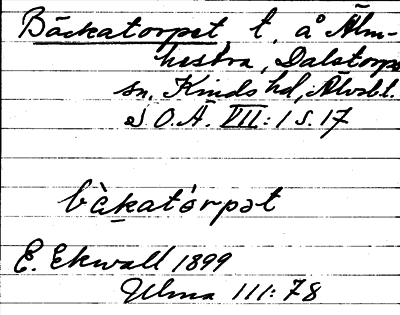 Bäckatorpet, t, å Älm-
hestra, Dalstorps
sn, Kinds hd, Älvsbl.
S O.Ä. VII: 1 s. 17
bàkatórpət
E. Ekwall 1899
Ulma 111: 78